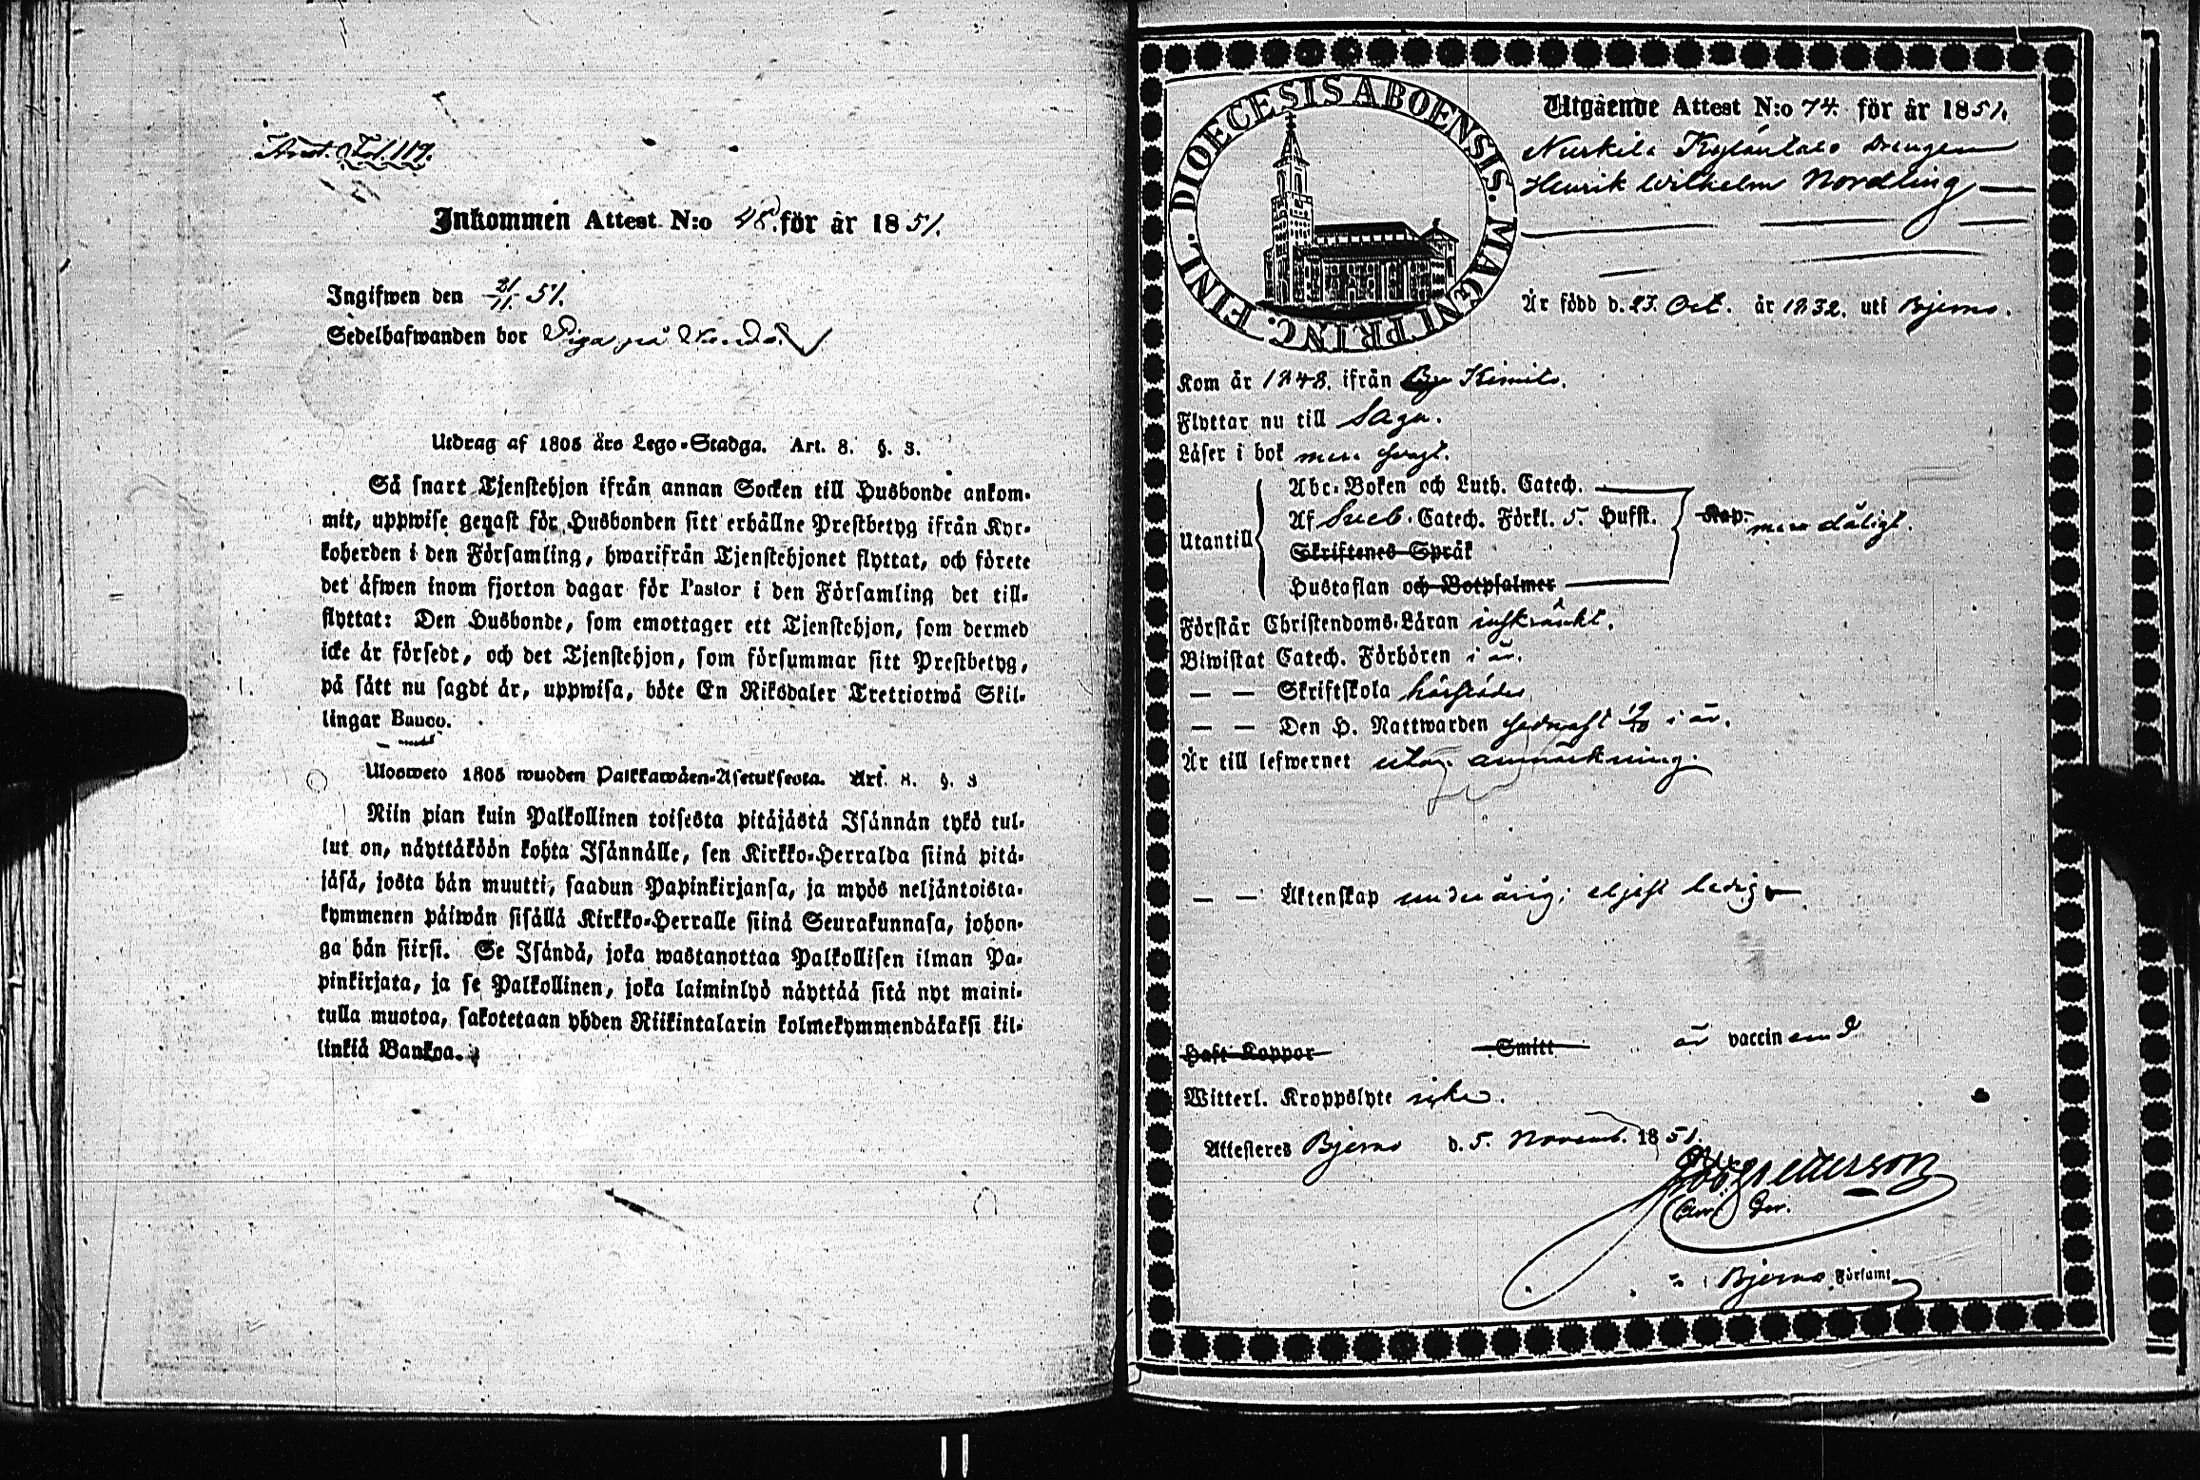 Anst. Fol. 117.
Inkommen Attest N:o 48. för år 1851.
Ingifwen den 21/11 51.
Sedelhafwanden bor Piga på
Utdrag af 1805 års Lego-Stadga. Art. 8. §. 3.
Så snart Tjenstehjon ifrån annan Socken till Husbonde ankom-
mit, uppwise genast för Husbonden sitt erhållne Prestbetyg ifrån Kyr-
koherden i den Församling, hwarifrån Tjenstehjonet flyttat, och förete
det åfwen inom fjorton dagar för Pastor i den Församling det till-
flyttat: Den Husbonde, som emottager ett Tjenstehjon, som dermed
icke år försedt, och det Tjenstehjon, som försummar sitt Prestbetyg,
på sått nu sagdt år, uppwisa, böte En Riksdaler Trettiotwå Skil-
lingar Banco.
Ulosweto 1805 wuoden Palkkawåen-Asetuksesta. Art. 8. §. 3
Niin pian kuin Palkollinen toisesta pitåjåstå Isånnån tykö tul-
lut on, nåyttåköön kohta Isånnålle, sen Kirkko-Herralda siinå pitå-
jåså, josta hån muutti, saadun Papinkirjansa, ja myös neljåntoista-
kymmenen påiwån sisållå Kirkko-Herralle siinå Seurakunnasa, johon-
ga hån siirsi. Se Isåndå, joka wastanottaa Palkollisen ilman Pa-
pinkirjata, ja se Palkollinen, joka laiminlyö nåyttåå sitå nyt maini-
tulla muotoa, sakotetaan yhden Riikintalarin kolmekymmendåkaksi kil-
linkiå Bankoa.
DIOECESIS ABOENSIS. MAGNI PRINC. FINL.
Utgående Attest N:o 74. för år 1851.
Nurkila Kylåntalo Drengen
Henrik Wilhelm Nordling
År född d. 23. Oct. år 1832. uti Bjerno.
Kom år 1848. ifrån Kimito.
Flyttar nu till Sagu.
Låser i bok men svagt.
Utantill
Abc-Boken och Luth. Catech.
Af Sveb. Catech. Förkl. 5. Hufst.
Skriftenes Språk
Hustaflan och Botpsalmer
Kap. men dåligt.
Förstår Christendoms-Låran inskränkt.
Biwistat Catech. Förhören i år.
— — Skriftskola härstädes
— — Den H. Nattwarden i år.
År till lefwernet utan anmärkning.
— — Äktenskap underårig; eljest ledig
Haft Koppor Smitt är vaccinerad
Witterl. Kroppslyte icke.
Attesteres Bjerno d. 5. Novemb. 1851.
Petterson
i Bjerno Församl.